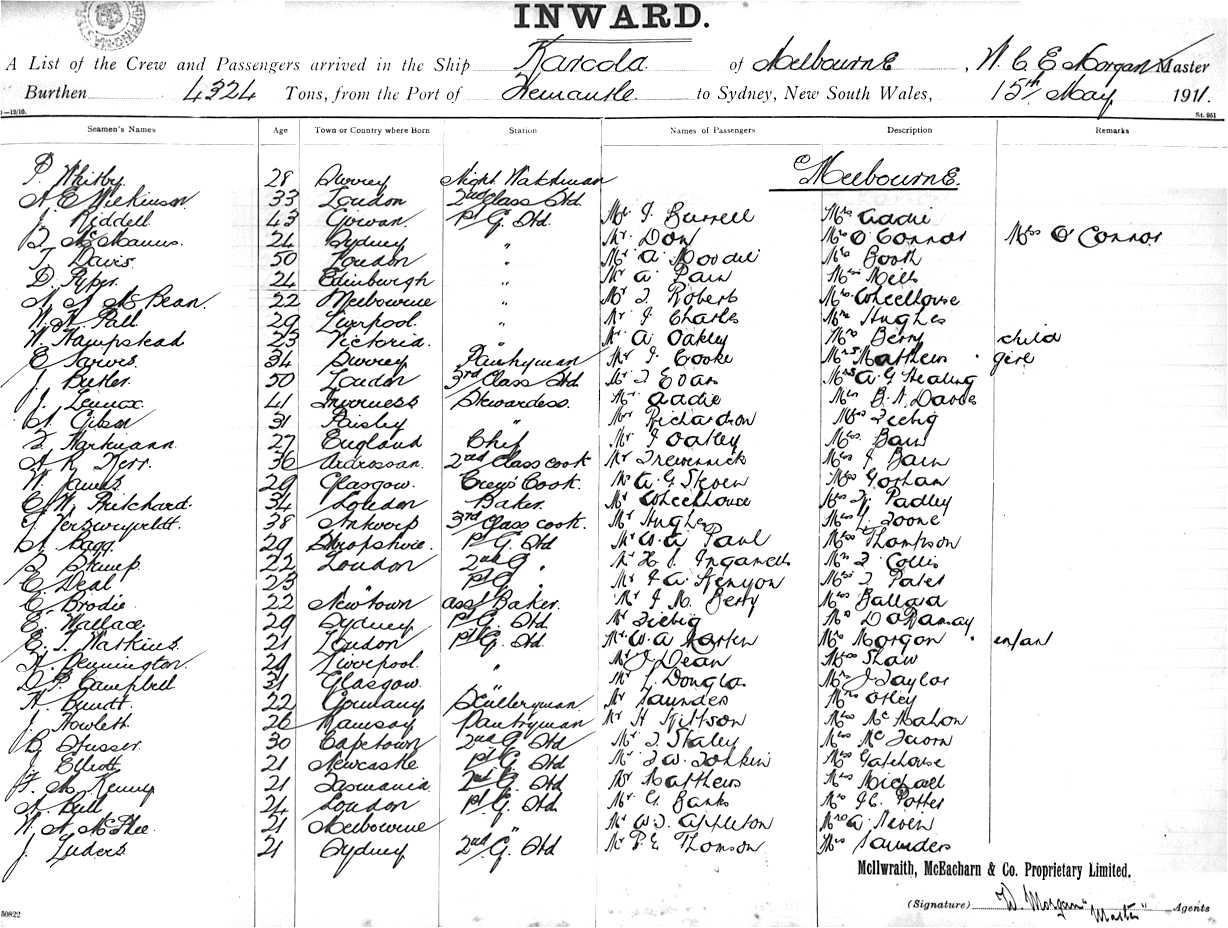 INWARD.
A List of the Crew and Passengers arrived in the Ship Karoola of Melbourne, W. C. E Morgan Master
Burthen 4324 Tons, from the Port of Fremantle to Sydney, New South Wales, 15th May 1911.
St. 951
Seamen's Names Age Town or Country where Born Station Names of Passengers Description Remarks
Melbourne.
P. Whitby 28 Surrey Night Watchman
A E Wilkinson 33 London 2nd Class Std
J. Riddell 43 Govan 1st G. Std. Mr J. Burrell Mrs Addie
McManus. 24 Sydney " Mr Don Mrs O'Connor Miss O'Connor
T. Davis 50 London " Mr A. Moodie Mrs Booth
D. Piper. 24 Edinburgh " Mr A Bain Mrs Mills
McBean. 22 Melbourne " Mr J. Roberts Mrs Wheelhouse
W. H. Pall 29 Liverpool. " Mr J Charles Mrs Hughes
W. Hampstead 23 Victoria. " Mr A Oakley Mrs Berry child
E Jarvis 34 Surrey Pantryman Mr J. Cooke Mrs Mathews girl
J. Butler 50 London 3rd Class Std Mr J Evans Mrs A. G Healing
J. Lennox. 41 Inverness Stewardess. Mr Addie Mrs Davies
Gibson 31 Paisley " Mr Richardson Miss Fiebig
Harkmann 27 England Chef Mr J Oakley Mrs. Bain
A R Kerr. 36 Ardrossan. 2nd Class cook Mr Trewennick Miss J Bain
W James 29 Glasgow. Crew's Cook. Mr A. G Steven Mrs Gorhan
C. W. Pritchard. 34 London Baker. Mr Wheelhouse Miss Padley
38 Antwerp 3rd Class cook. Mr Hughes Miss Toone
Bagg. 29 Shropshire. 1st G. Std Mr W. A Paul Miss Thompson
Stump 22 London 2nd G " Mr H. S. Ingamells Mrs J. Collis
C. Deal 23 " 1st G " Mr J A. Kenyon Miss J Pates
C. Brodie. 22 Newtown asst Baker. Mr J. M. Berry Miss Ballard
E. Wallace 29 Sydney 1st G. Std Mr Fiebig
E. J. Watkins. 21 London 1st G. Std. Mr W. A Marten Mrs Morgan infant
A. Pennington. 29 Liverpool. " Mr J Dean Miss Shaw
D. P. Campbell 31 Glasgow. " Mr J. Douglas Mrs J Taylor
A Bundt. 22 Germany Sculleryman Mr Saunders Mrs Otley
J. Howlett 26 Ramsay Pantryman Mr H Kittson Miss McMahon
B. Stusser. 30 Capetown 2nd G Std Mr J. Staley Miss
J. Elliott 21 Newcastle 1st G. Std Mr J. W. Tonkin Miss Gatehouse
F. M. Kenny 21 Tasmania. 2nd G. Std Mr Matthews Mrs Michael
A. Bull 24 London 1st G. Std Mr G. Banks Mrs J. C. Potter
W. A. McPhee. 21 Melbourne " Mr W. J. Appleton Mrs A. Neven
J. Luders. 21 Sydney 2nd G. Std Mr P. E Thomson Miss Saunders
McIlwraith, McEacharn & Co. Proprietary Limited.
50822
(Signature) W. Morgan "Master" Agents